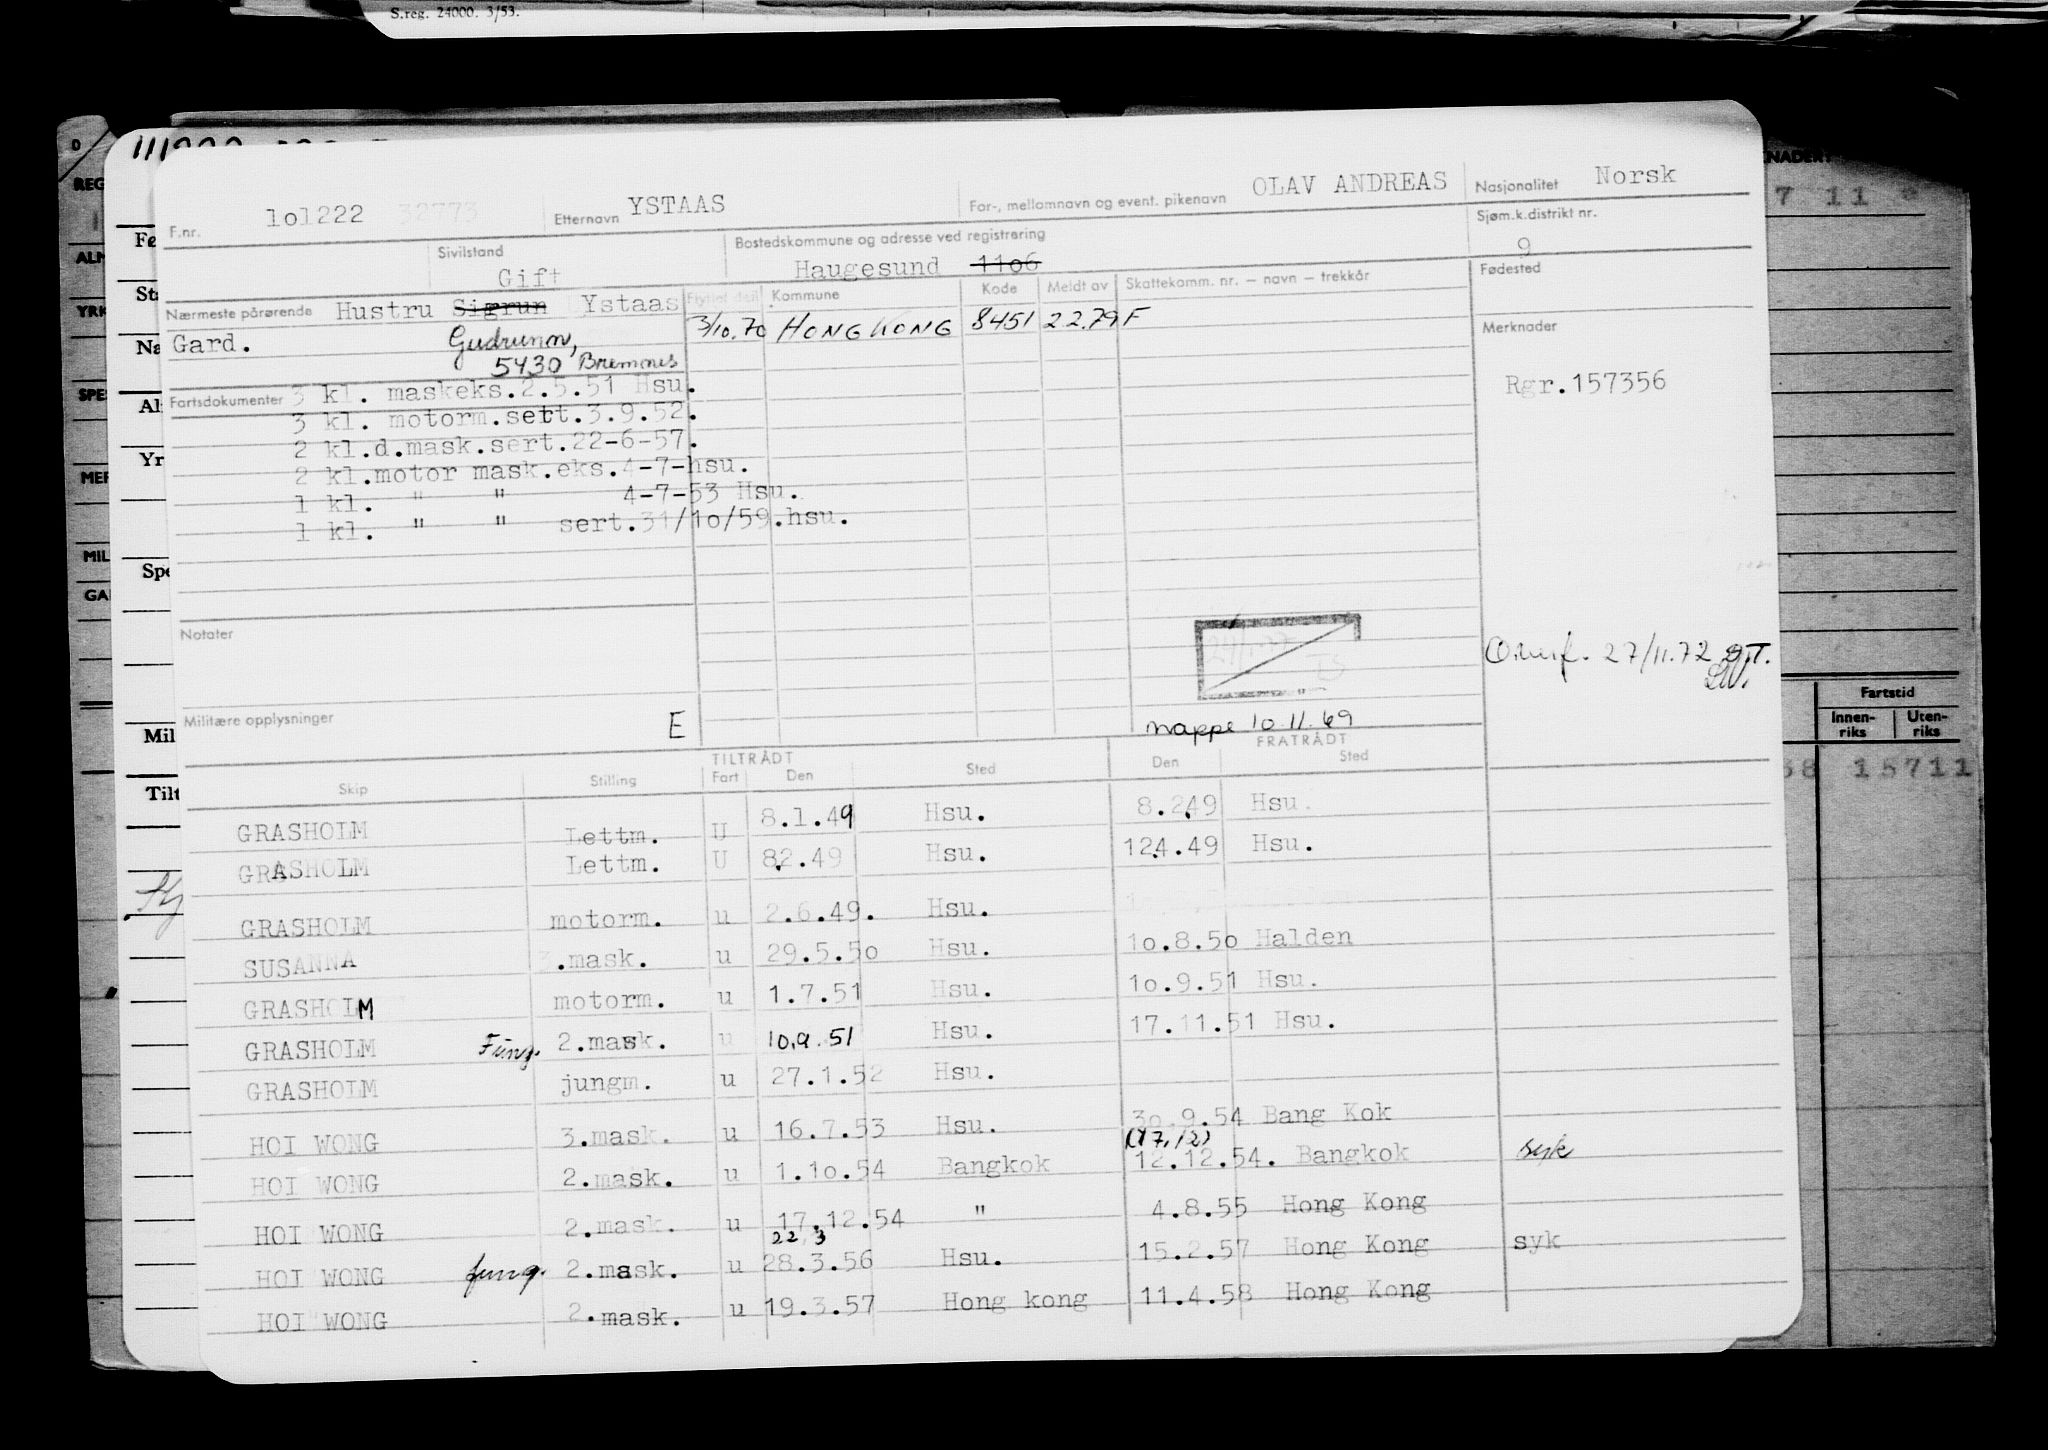 S.reg. 24000. 3/53.
F.nr. 1o1222 32773 Etternavn YSTAAS For-, mellomnavn og event. pikenavn OLAV ANDREAS Nasjonalitet Norsk
Sivilstand Gift Bostedskommune og adresse ved registrering Haugesund 11o6 Sjøm.k.distrikt nr. 9
Nærmeste pårørende Hustru Sigrun Ystaas Flyttet den Kommune Kode Meldt av Skattekomm. nr. — navn — trekkår Fødested
Gard. Gudrunn, 3/10.70 HONG KONG 8451 22.79 F Merknader
5430 Bremnes
Fartsdokumenter 3 kl. maskeks.2.5.51 Hsu. Rgr.157356
3 kl. motorm.sert.3.9.52.
2 kl.d.mask.sert.22-6-57.
2 kl.motor mask.eks.4-7-hsu.
1 kl. " " 4-7-53 Hsu.
1 kl. " " sert.31/1o/59.hsu.
Notater
27/11.72
Militære opplysninger E mappe 10.11.69
TILTRÅDT FRATRÅDT
Skip Stilling Fart Den Sted Den Sted
GRASHOLM Lettm. U 8.1.49 Hsu. 8.2.49 Hsu.
GRASHOLM Lettm. U 8.2.49 Hsu. 12.4.49 Hsu.
GRASHOLM motorm. u 2.6.49. Hsu.
SUSANNA 3.mask. u 29.5.5o Hsu. 1o.8.5o Halden
GRASHOLM motorm. u 1.7.51 Hsu. 1o.9.51 Hsu.
GRASHOLM Fung. 2.mask. u 10.9.51 Hsu. 17.11.51 Hsu.
GRASHOLM jungm. u 27.1.52 Hsu.
HOI WONG 3.mask. u 16.7.53 Hsu. 3o.9.54 Bang Kok
(17.12)
HOI WONG 2.mask. u 1.1o.54 Bangkok 12.12.54. Bangkok syk
HOI WONG 2.mask. u 17.12.54 " 4.8.55 Hong Kong
22 3
HOI WONG fung. 2.mask. u 28.3.56 Hsu. 15.2.57 Hong Kong syk
HOI WONG 2.mask. u 19.3.57 Hong kong 11.4.58 Hong Kong
Fartstid
Innen-riks Uten-riks
15711